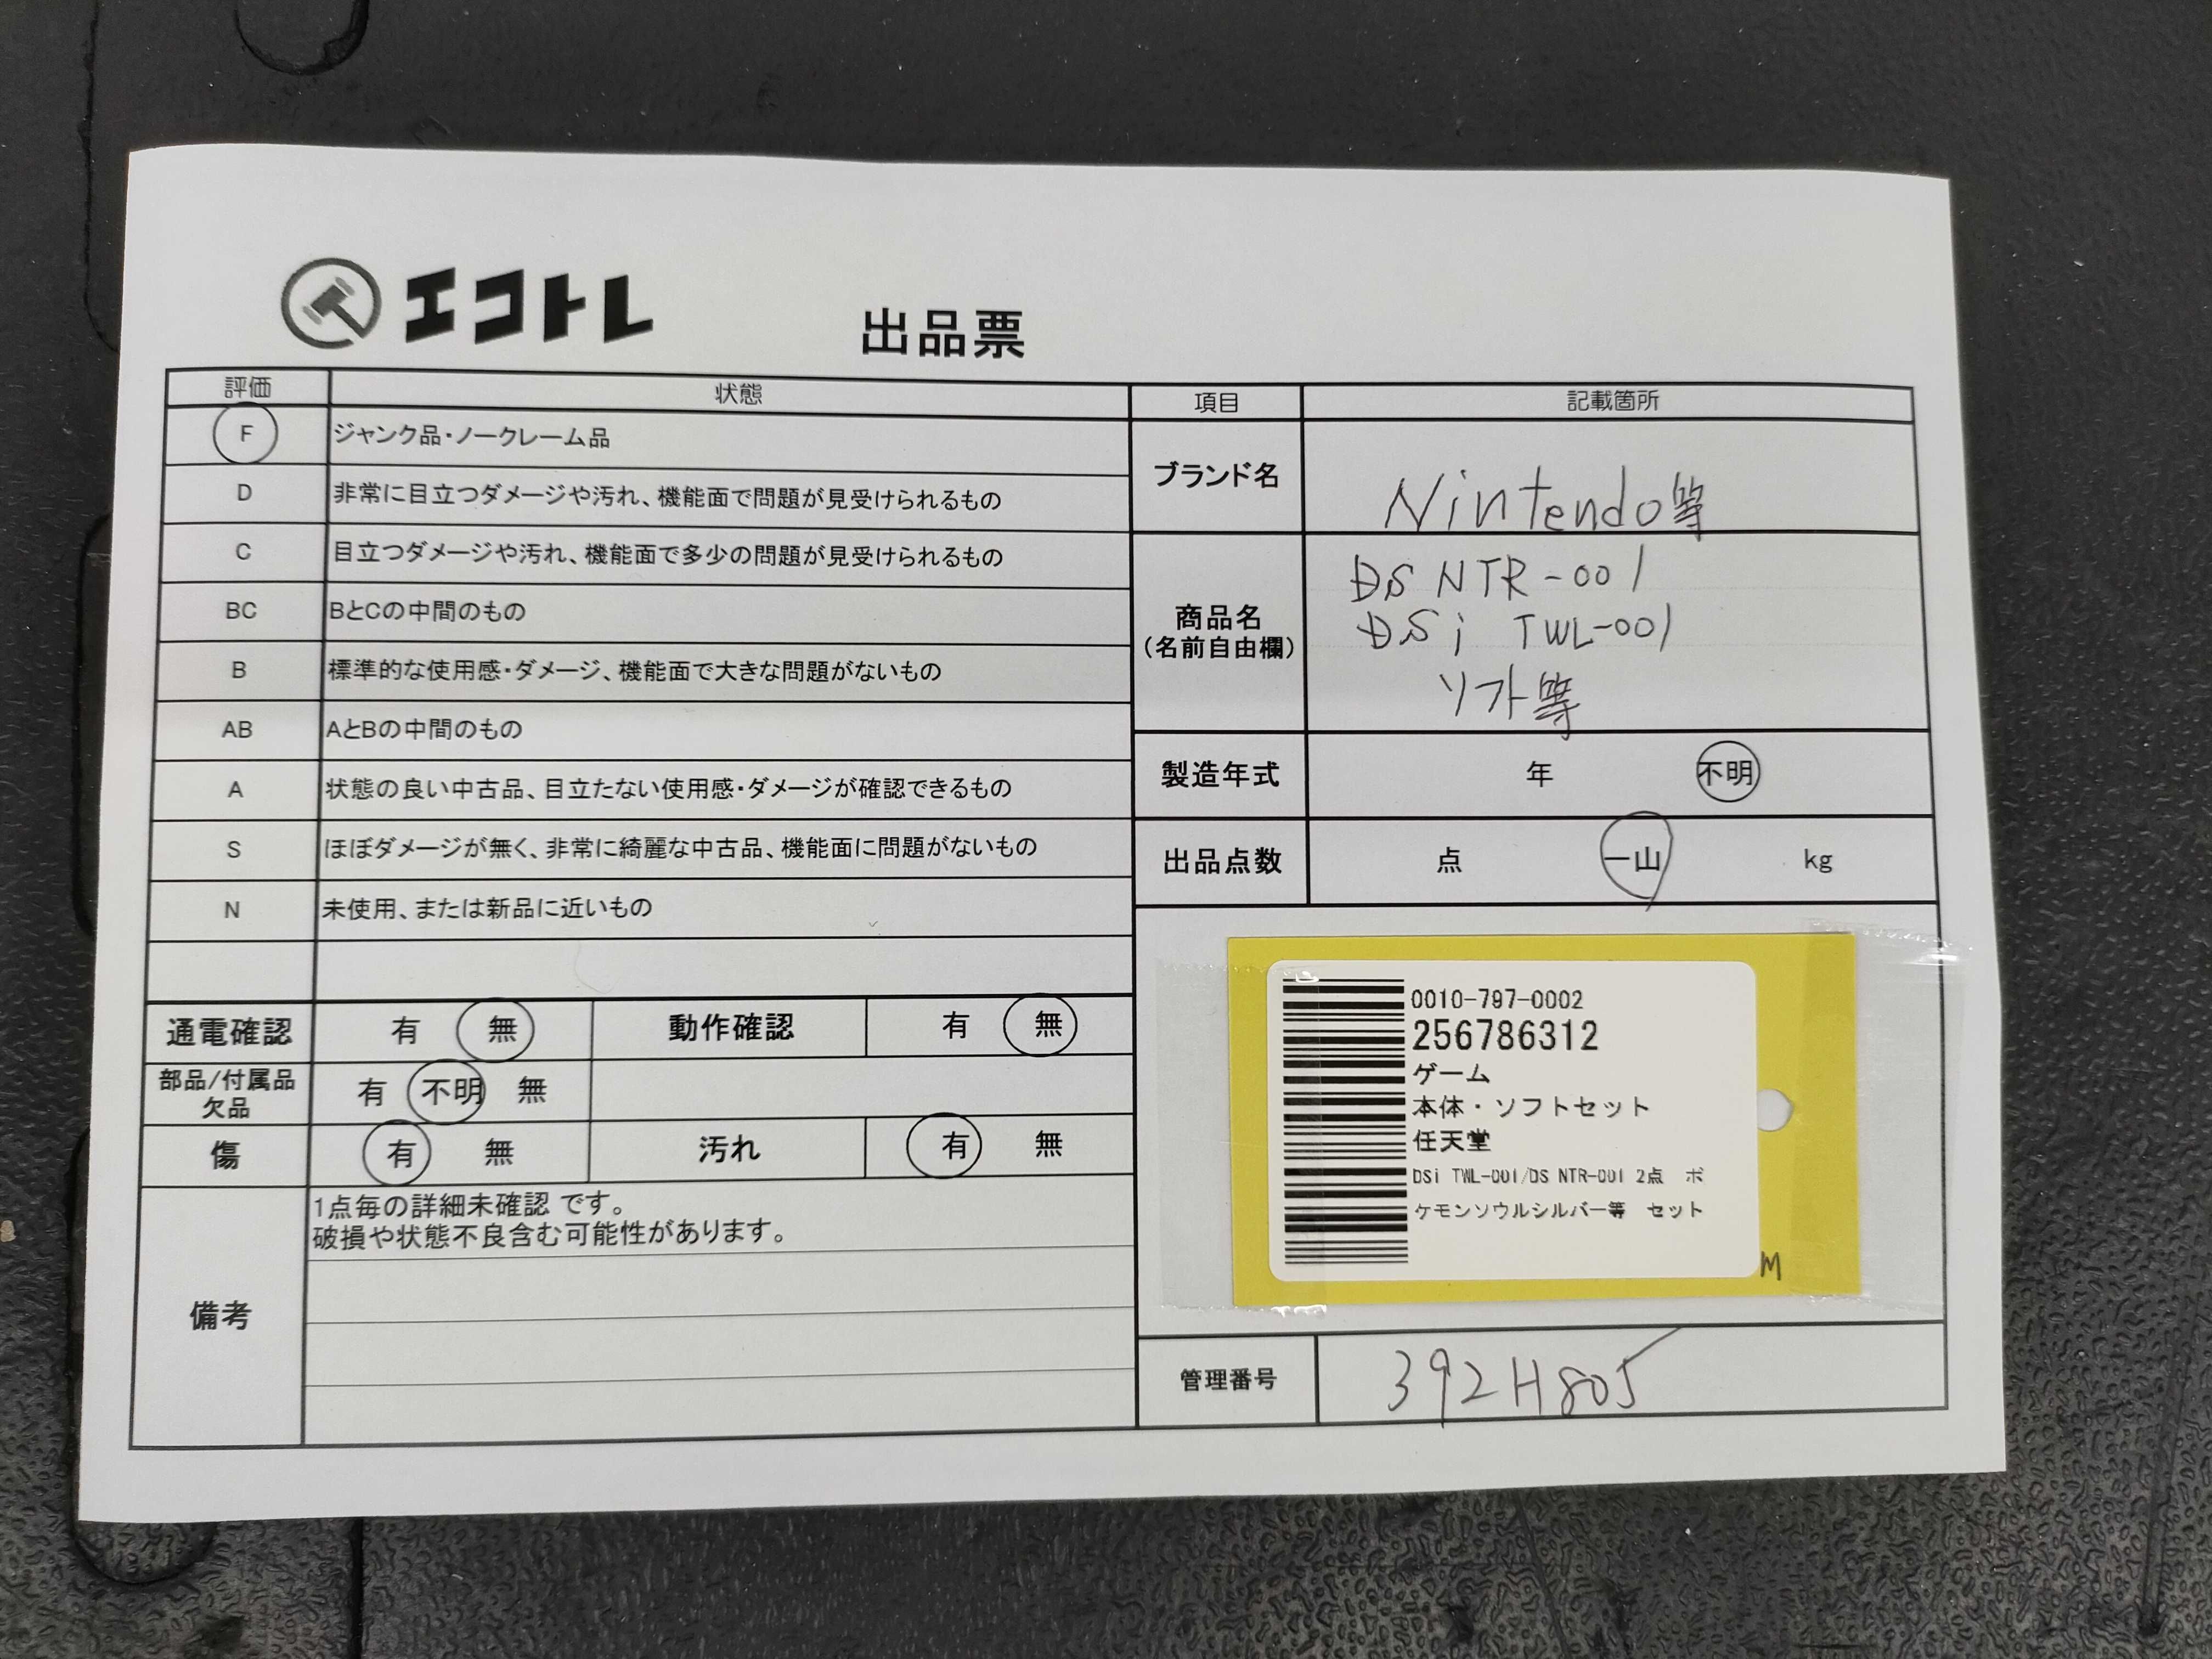 エコトレ
出品票
評価 状態
F ジャンク品・ノークレーム品
D 非常に目立つダメージや汚れ、機能面で問題が見受けられるもの
C 目立つダメージや汚れ、機能面で多少の問題が見受けられるもの
BC BとCの中間のもの
B 標準的な使用感・ダメージ、機能面で大きな問題がないもの
AB AとBの中間のもの
A 状態の良い中古品、目立たない使用感・ダメージが確認できるもの
S ほぼダメージが無く、非常に綺麗な中古品、機能面に問題がないもの
N 未使用、または新品に近いもの
通電確認 有 無 動作確認 有 無
部品/付属品
欠品 有 不明 無
傷 有 無 汚れ 有 無
備考
1点毎の詳細未確認 です。
破損や状態不良含む可能性があります。
項目 記載箇所
ブランド名 Nintendo等
商品名
(名前自由欄)
DS NTR-001
DSi TWL-001
ソフト等
製造年式 年 不明
出品点数 点 一山 kg
0010-797-0002
256786312
ゲーム
本体・ソフトセット
任天堂
DSi TWL-001/DS NTR-001 2点 ポ
ケモンソウルシルバー等 セット
M
管理番号 392H805